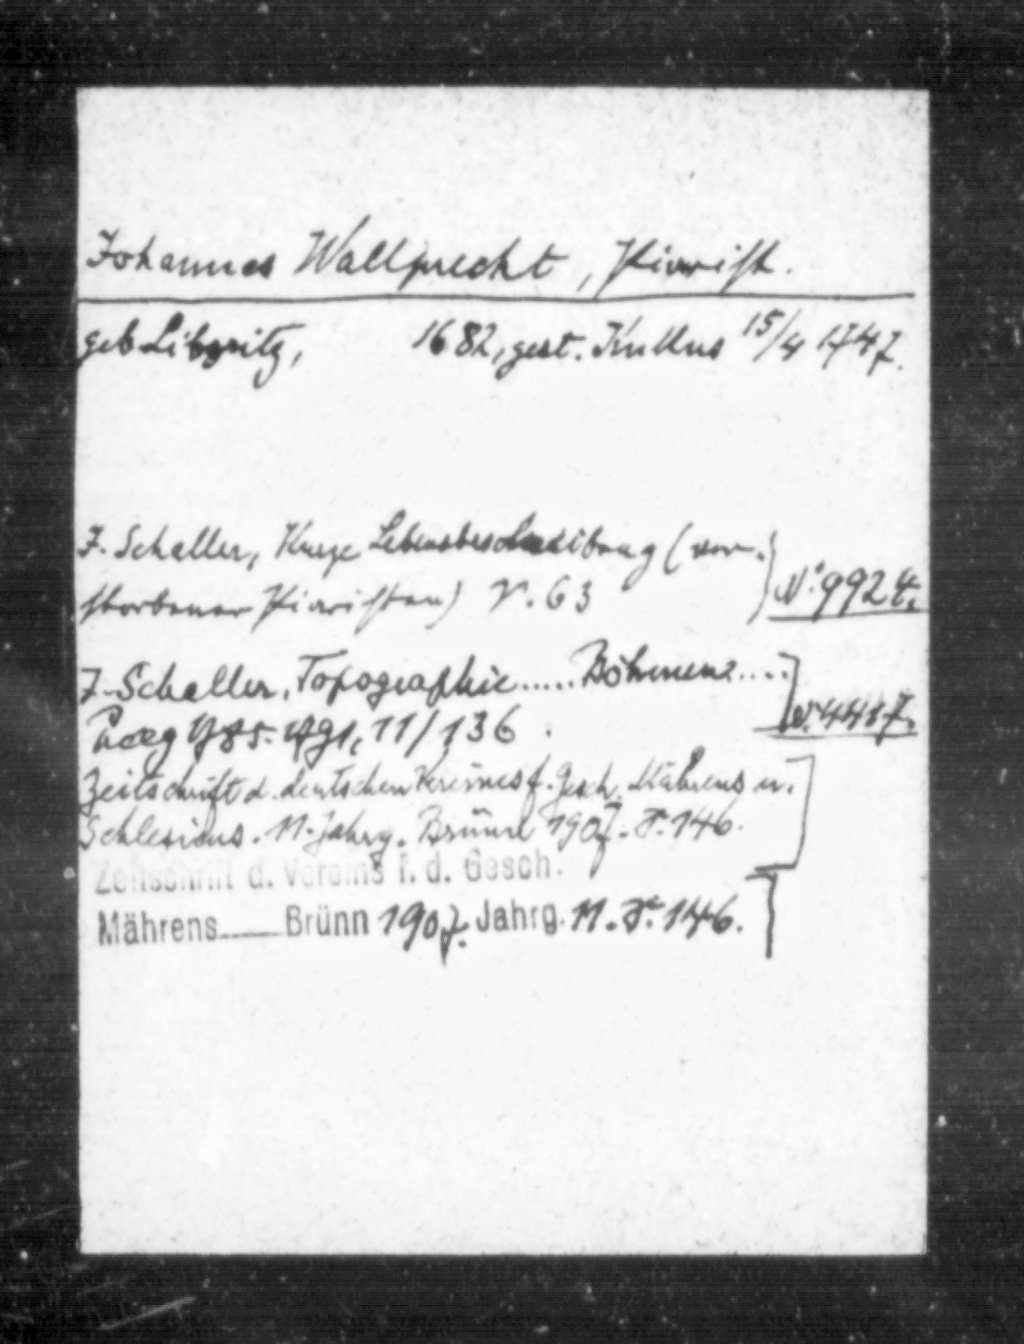 Johannes Wallprecht, Piarist.
geb Libořitz, 1682, gest. Kukus 15/4 1747.
J. Schaller, Kurze Lebensbeschreibung (ver-
storbener Piaristen) S. 63 N° 9924.
J. Schaller, Topographie..... Böhmens....
Prag 785-791, 11/136. N. 4417.
Zeitschrift d. deutschen Vereines f. Gesch. Mährens u.
Schlesiens. 11. Jahrg. Brünn 1907. S. 146.
Zeitschrift d. Vereins f. d. Gesch.
Mährens Brünn 1907. Jahrg. 11. S. 146.